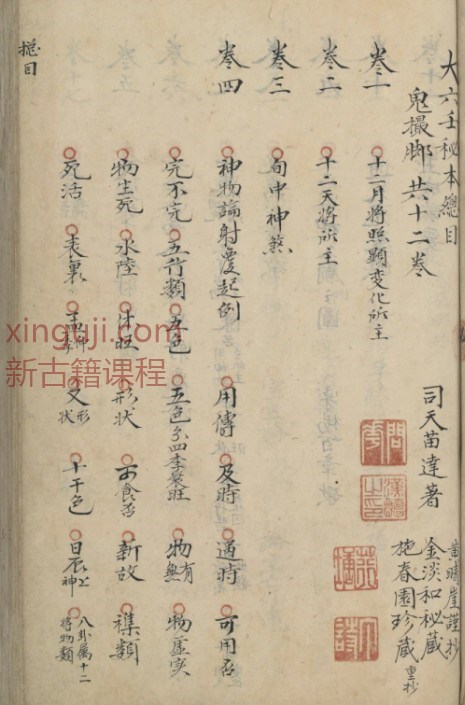 大六壬秘本總目
鬼撮脚 共十二卷
司天苗達著
謹抄
金淡和秘藏
抱春園珍藏 重抄
卷一 十二月將照顯变化所主
卷二 十二天將所主
卷三 旬中神煞
卷四 神物論射覆起例 用傳 及時 過時 可用否
完不完 五行類 五色 五色分四季衰旺 物有無 物虛实
物生死 水陸 休旺 形状 可食否 新故 襍類
死活 表裏 孟仲季 又形状 十干色 日辰上神 八卦属十二将物類
總目
xingyuji.com
新古籍课程